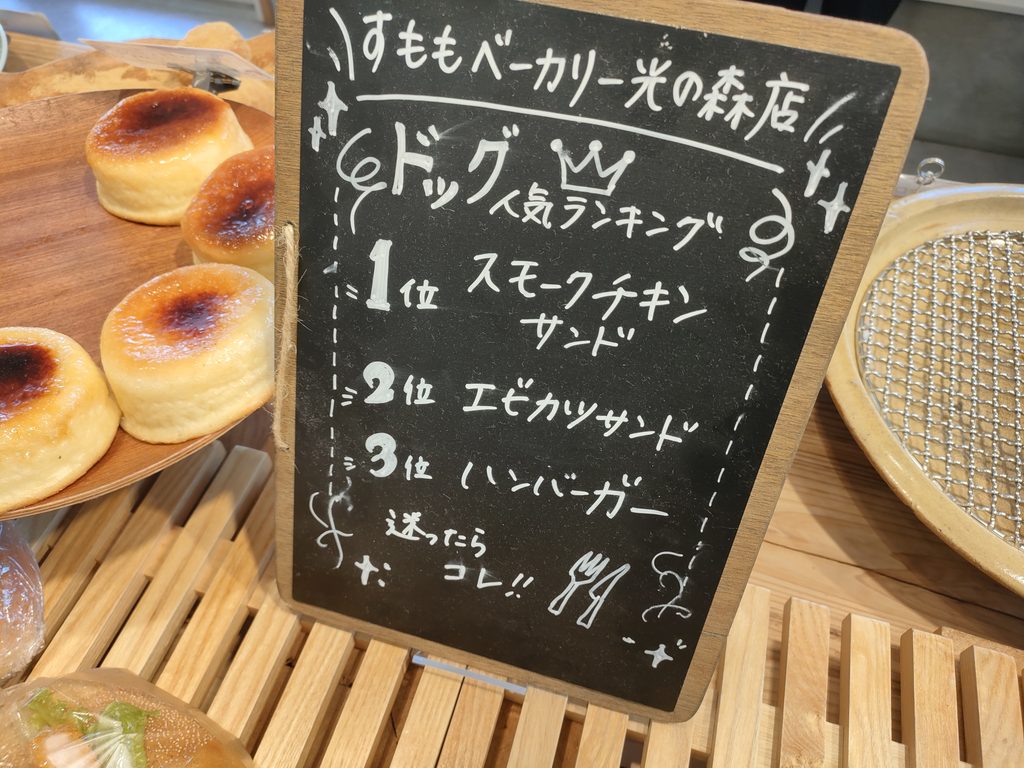 すももベーカリー光の森店
ドッグ
人気ランキング
1位 スモークチキン
サンド
2位 エビカツサンド
3位 ハンバーガー
迷ったら
コレ!!